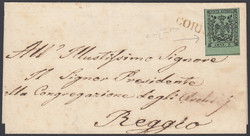 COR
All' Illustissimo Signore
Il Signor Presidente
della Congregazione degli
Reggio